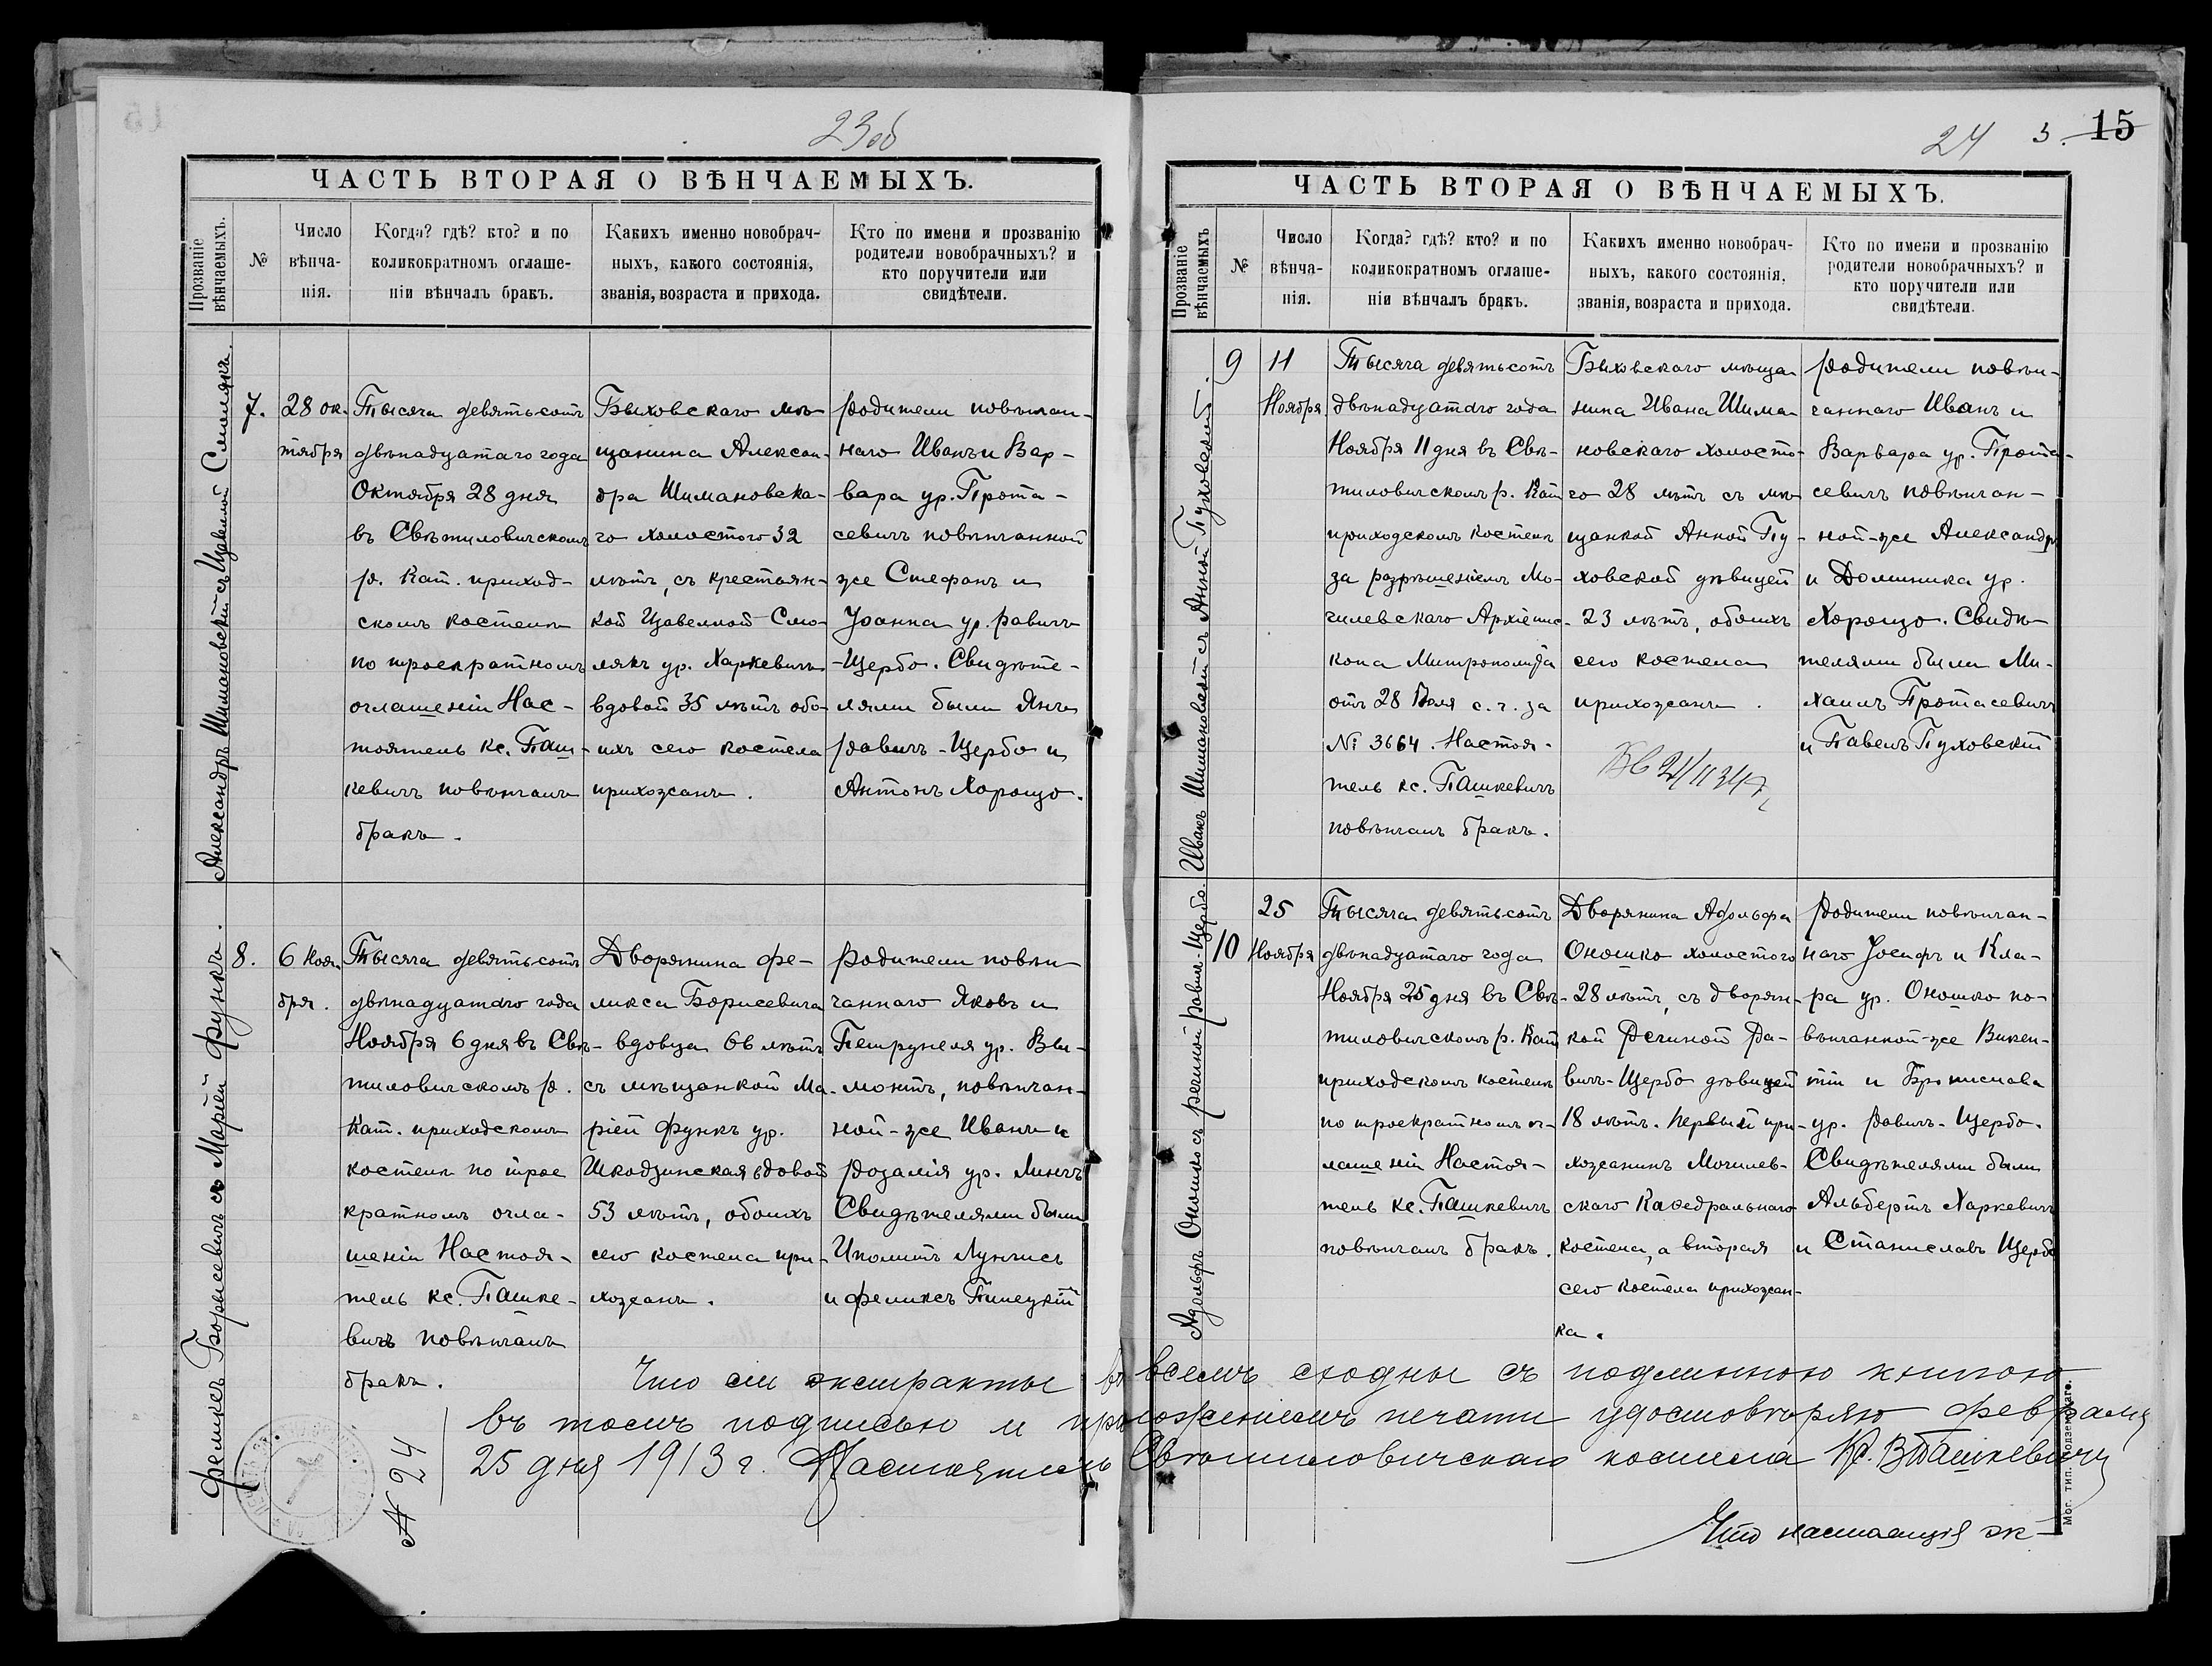 23об
ЧАСТЬ ВТОРАЯ О ВѢНЧАЕМЫХЪ.
Прозваніе вѣнчаемыхъ.
№
Число вѣнча-нія.
Когда? гдѣ? кто? и по коликократномъ оглаше-ніи вѣнчалъ бракъ.
Какихъ именно новобрач-ныхъ, какого состоянія, званія, возраста и прихода.
Кто по имени и прозванію родители новобрачныхъ? и кто поручители или свидѣтели.
Александръ Шимановскій съ Изабеллой Смолякъ.
7.
28 ок-
тября
Тысяча девятьсотъ
двѣнадцатаго года
Октября 28 дня
въ Свѣтиловичскомъ
р. Кат. приход-
скомъ костелѣ
по троекратномъ
оглашеніи Нас-
тоятель кс. Паш-
кевичъ повѣнчалъ
бракъ.
Быховскаго мѣ-
щанина Алексан-
дра Шимановска-
го холостого 32
лѣтъ, съ крестьян-
кой Изабеллой Смо-
лякъ ур. Харкевичъ
вдовой 35 лѣтъ обо-
ихъ сего костела
прихожанъ.
Родители повѣнчан-
наго Иванъ и Вар-
вара ур. Прота-
севичъ повѣнчанной
же Стефанъ и
Іоанна ур. Равичъ
-Щербо. Свидѣте-
лями были Янъ
Равичъ-Щербо и
Антонъ Хорощо.
Феликсъ Борисевичъ съ Маріей Функъ.
8.
6 Ноя-
бря.
Тысяча девятьсотъ
двѣнадцатаго года
Ноября 6 дня въ Свѣ-
тиловичскомъ р.
Кат. приходскомъ
костелѣ по трое
кратномъ огла-
шеніи Настоя-
тель кс. Пашке-
вичъ повѣнчалъ
бракъ.
Дворянина Фе-
ликса Борисевича
вдовца 66 лѣтъ
съ мѣщанкой Ма-
ріей Функъ ур.
Шкодзинская вдовой
53 лѣтъ, обоихъ
сего костела при-
хожанъ.
Родители повѣн-
чаннаго Яковъ и
Петрунеля ур. Вы-
монтъ, повѣнчан-
ной-же Иванъ и
Розалія ур. Линчъ
Свидѣтелями были
Иполитъ
и Феликсъ
Что сіи экстракты во всемъ сходны съ подлинною книгою
въ томъ подписью и приложеніемъ печати удостовѣряю Февраля
25 дня 1913 г. Настоятель Свѣтиловичскаго костела Кс. В Пашкевичъ
№ 24
24 3. 15
ЧАСТЬ ВТОРАЯ О ВѢНЧАЕМЫХЪ.
Прозваніе вѣнчаемыхъ
№
Число вѣнча-нія.
Когда? гдѣ? кто? и по коликократномъ оглаше-ніи вѣнчалъ бракъ.
Какихъ именно новобрач-ныхъ, какого состоянія, званія, возраста и прихода.
Кто по имени и прозванію родители новобрачныхъ? и кто поручители или свидѣтели.
Иванъ Шимановскій съ Анной Пуховской.
9
11
Ноября
Тысяча девятьсотъ
двѣнадцатаго года
Ноября 11 дня въ Свѣ-
тиловичскомъ р. Кат
приходскомъ костелѣ
за разрѣшеніемъ Мо-
гилевскаго Архіепис-
копа Митрополита
отъ 28 с. г. за
№ 3664. Настоя-
тель кс. Пашкевичъ
повѣнчалъ бракъ.
Быховскаго мѣща
нина Ивана Шима-
новскаго холосто-
го 28 лѣтъ съ мѣ-
щанкой Анной Пу-
ховской дѣвицей
23 лѣтъ, обоихъ
сего костела
прихожанъ.
Родители повѣн-
чаннаго Иванъ и
Варвара ур. Прота-
севичъ повѣнчан-
ной-же Александръ
и Доминика ур.
Хорощо. Свидѣ-
телями были Ми-
хаилъ Протасевичъ
и Павелъ Пуховскій
Адольфъ Оношко съ Региной Равичъ-Щербо.
10
25
Ноября
Тысяча девятьсотъ
двѣнадцатаго года
Ноября 25 дня въ Свѣ-
тиловичскомъ р. Кат
приходскомъ костелѣ
по троекратномъ ог-
лашеніи Настоя-
тель кс. Пашкевичъ
повѣнчалъ бракъ.
Дворянина Адольфа
Оношко холостого
28 лѣтъ, съ дворян-
кой Региной Ра-
вичъ-Щербо дѣвицей
18 лѣтъ. Первый при-
хожанинъ Могилев-
скаго Каѳедральнаго
костела, а вторая
сего костела прихожан-
ка.
Родители повѣнчан-
наго Іосифъ и Кла-
ра ур. Оношко по-
вѣнчанной-же Викен-
тій и Бронислава
ур. Равичъ-Щербо.
Свидѣтелями были
Альбертъ Харкевичъ
и Станиславъ Щербо
Что настоящія эк-